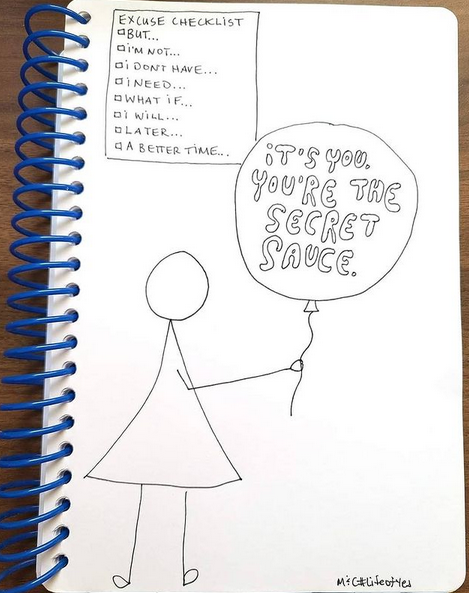 EXCUSE CHECKLIST
BUT...
I'M NOT...
I DONT HAVE...
I NEED...
WHAT IF...
I WILL...
LATER...
A BETTER TIME...
IT'S YOU.
YOU'RE THE
SECRET
SAUCE.